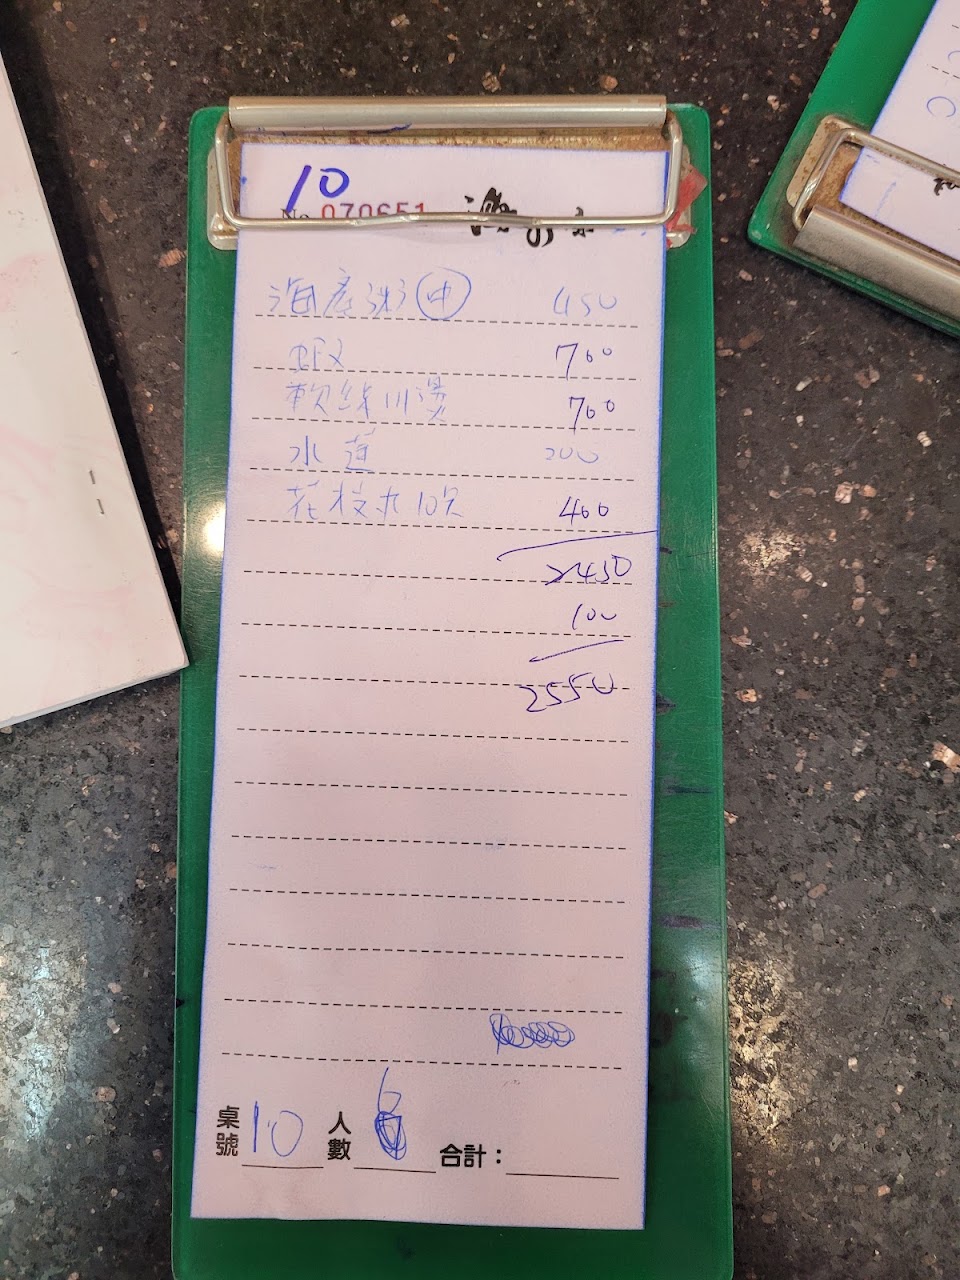 10
No 070651
海產粥 中 450
蝦 700
軟絲川燙 700
水蓮 200
花枝丸 10只 400
2450
100
2550
桌號 10 人數 6 合計：